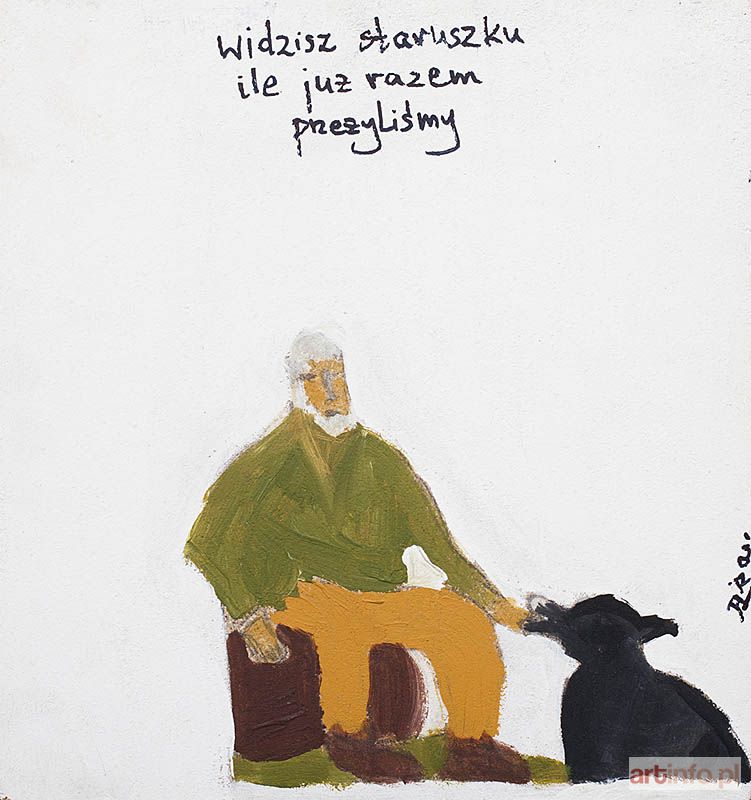 widzisz staruszku
ile już razem
przeżyliśmy
artinfo.pl